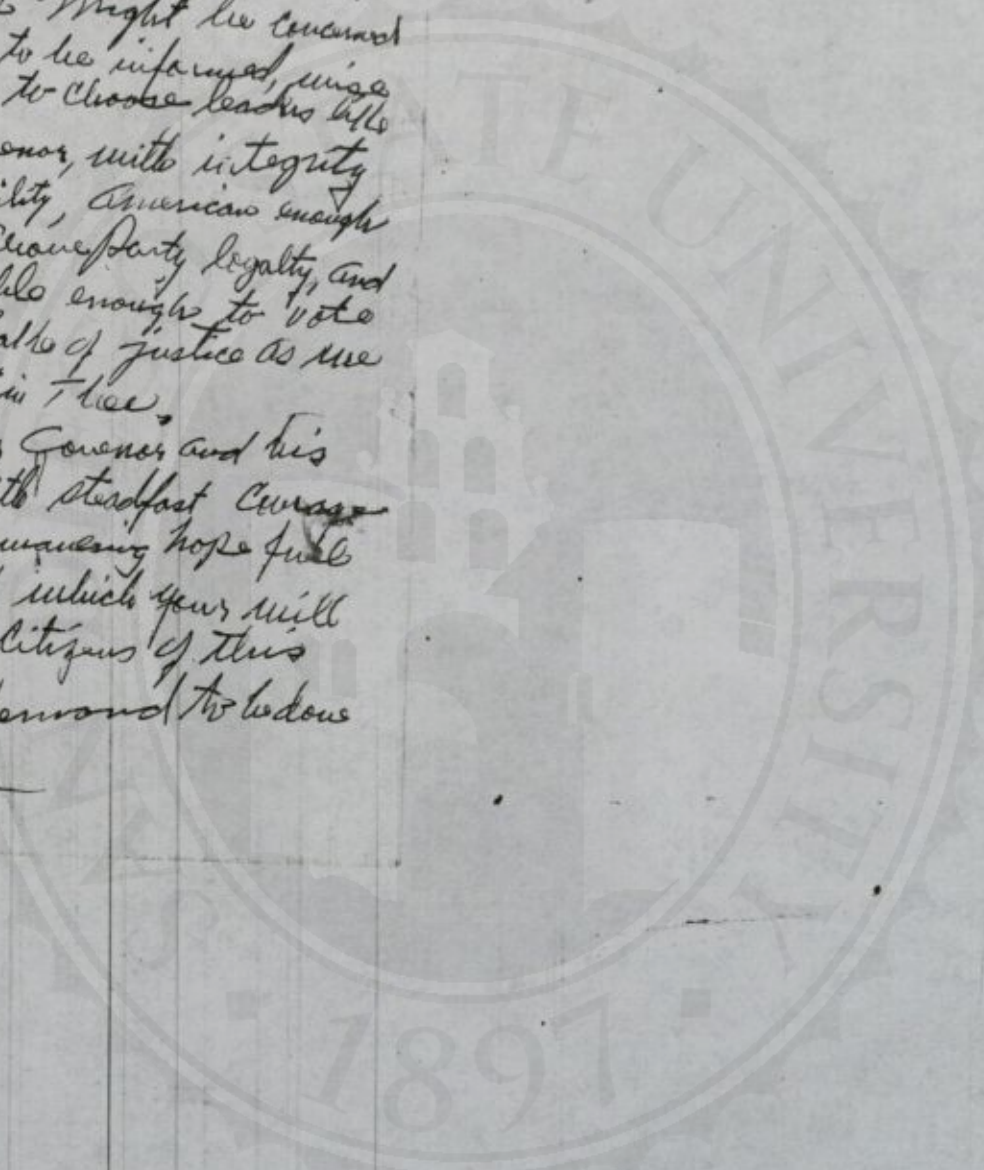 might be concerned
to be informed, wise
to choose leaders like
enor, with integrity
ility, American enough
Party loyalty, and
enough to vote
of justice as we
in Thee,
Govenor and his
steadfast courage
hope full
which your will
Citizens of this
emand to be done
ATE UNIVERSITY
1897